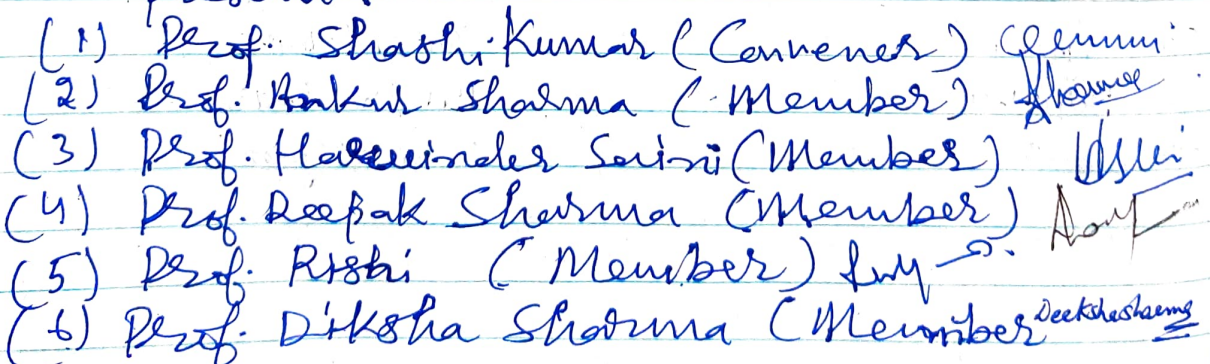 (1) Prof. Shashi Kumar (Convener)
(2) Prof. Ankur Sharma (Member) Sharma
(3) Prof. Harwinder Saini (Member)
(4) Prof. Deepak Sharma (Member)
(5) Prof. Rishi (Member)
(6) Prof. Diksha Sharma (Member Deeksha Sharma